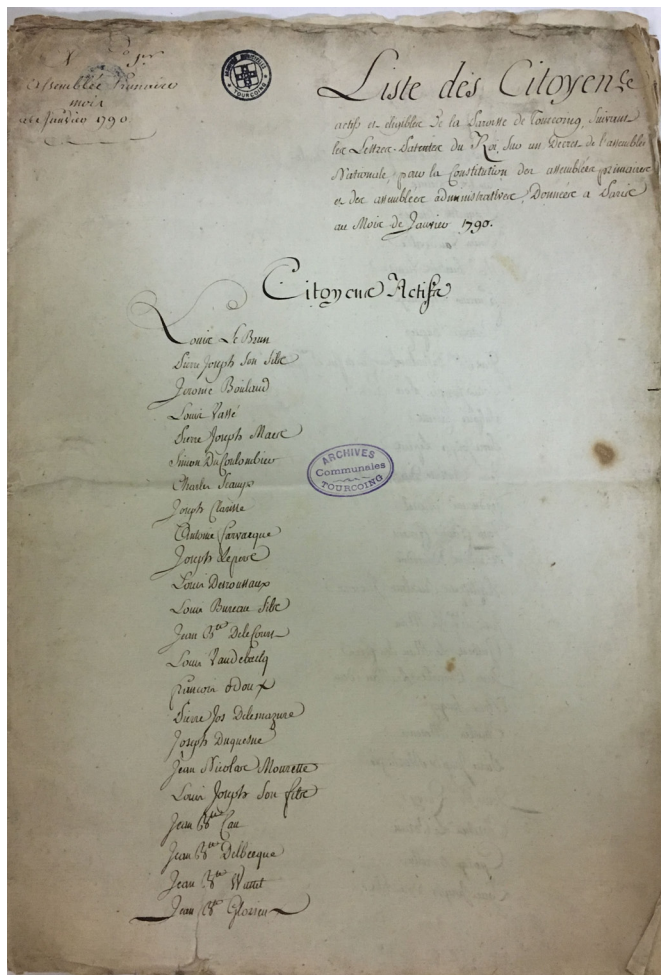 1er
assemblée Primaire
mois
de Janvier 1790
ARCHIVES COMMUNALES
TOURCOING
Liste des Citoyens
actifs et eligibles de la Paroisse de Tourcoing, Suivant
les Lettres-Patentes du Roi, Sur un Decret de l'assemblée
Nationale, pour la Constitution des assemblées primaires
et des assemblées administratives, Données a Paris
au Mois de Janvier 1790.
Citoyens Actifs
Louis Le Brun
Pierre Joseph Son fils
Jerome Boulaud
Louis Vassé
Pierre Joseph Maes
Simon DuCoulombier
Charles Scamps
Joseph Clarisse
Antoine Carvacque
Joseph Leperre
Louis Desrousseaux
Louis Bureau fils
Jean Bte DeleCourt
Louis Vandebeulq
françois Odoux
Pierre Jos Delemazure
Joseph Duquesne
Jean Nicolas Mourette
Louis Joseph Son fils
Jean Bte Cau
Jean Bte Delbecque
Jean Bte Wattel
Jean Bte Glorieu
ARCHIVES
Communales
TOURCOING